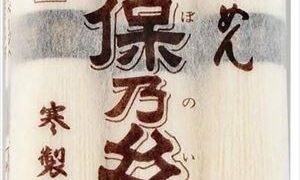 めん
保乃糸
ぼのい
寒製